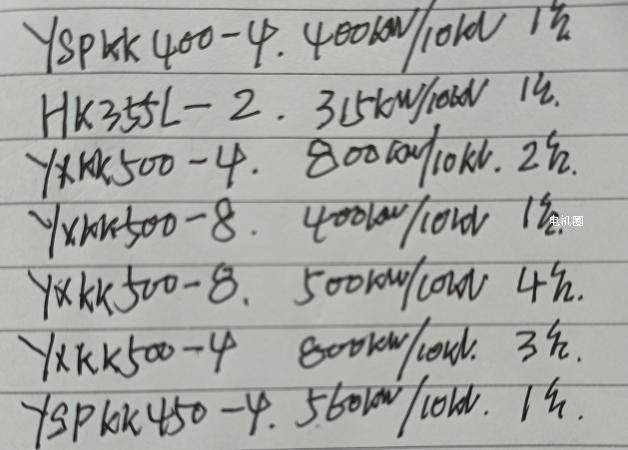 YSPKK400-4. 400kW/10kV 1台
HK355L-2. 315kW/10kV 1台.
YXKK500-4. 800kW/10kV. 2台.
YXKK500-8. 400kW/10kV 1台.
电机圈
YXKK500-8. 500kW/10kV 4台.
YXKK500-4 800kW/10kV. 3台.
YSPKK450-4. 560kW/10kV. 1台.